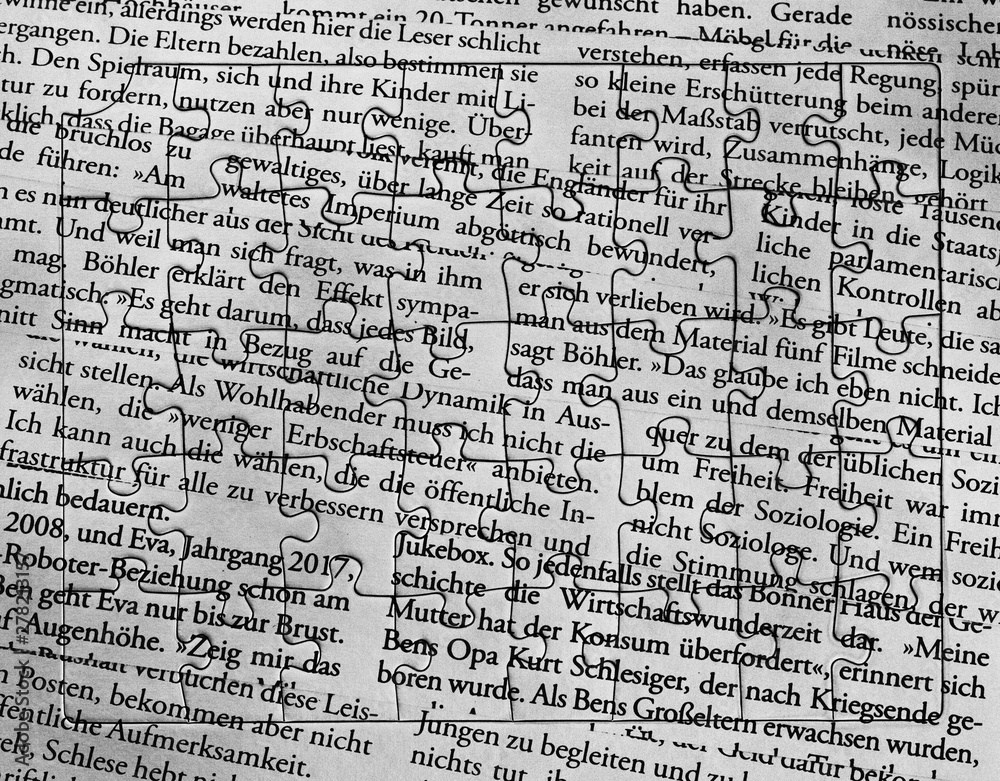 kommt ein 20-Tonner angefahren
gewünscht haben. Gerade
ein, allerdings werden hier die Leser schlicht
ergangen. Die Eltern bezahlen, also bestimmen sie
ch. Den Spielraum, sich und ihre Kinder mit Li-
tur zu fordern, nutzen aber nur wenige. Über-
klich, dass die Bagage überhaupt liest, kauft man
nössische
Möbel für die
verstehen, erfassen jede Regung, spür
so kleine Erschütterung beim andere
bei der Maßstab verrutscht, jede Müc
fanten wird, Zusammenhänge, Logik
keit auf der Strecke bleiben, gehört
die bruchlos zu
de führen: »Am
gewaltiges, über lange Zeit so rationell ver-
waltetes Imperium abgöttisch bewundert,
die Engländer für ihr
Kinder in die Staats
liche parlamentarisch
lichen Kontrollen ab
n es nun deutlicher aus der Sicht
mt. Und weil man sich fragt, was in ihm
mag. Böhler erklärt den Effekt sympa-
gmatisch. »Es geht darum, dass jedes Bild,
nitt Sinn macht in Bezug auf die Ge-
er sich verlieben wird. »Es gibt Leute, die sa
man aus dem Material fünf Filme schneide
sagt Böhler. »Das glaube ich eben nicht. Ich
dass man aus ein und demselben Material
die wirtschaftliche Dynamik in Aus-
sicht stellen. Als Wohlhabender muss ich nicht die
wählen, die »weniger Erbschaftsteuer« anbieten.
Ich kann auch die wählen, die die öffentliche In-
frastruktur für alle zu verbessern versprechen und
quer zu dem der üblichen Sozi
um Freiheit. Freiheit war imm
blem der Soziologie. Ein Freih
nicht Soziologe. Und wem sozio
die Stimmung schlagen, der w
nlich bedauern.
2008, und Eva, Jahrgang 2017,
-Roboter-Beziehung schon am
Ben geht Eva nur bis zur Brust.
uf Augenhöhe. »Zeig mir das
Jukebox. So jedenfalls stellt das Bonner Haus der Ge-
schichte die Wirtschaftswunderzeit dar. »Meine
Mutter hat der Konsum überfordert«, erinnert sich
Bens Opa Kurt Schlesiger, der nach Kriegsende ge-
boren wurde. Als Bens Großeltern erwachsen wurden,
diese Leis-
n Posten, bekommen aber nicht
ffentliche Aufmerksamkeit.
Schlese hebt
Jungen zu begleiten und zu
nichts tut,
Adobe Stock